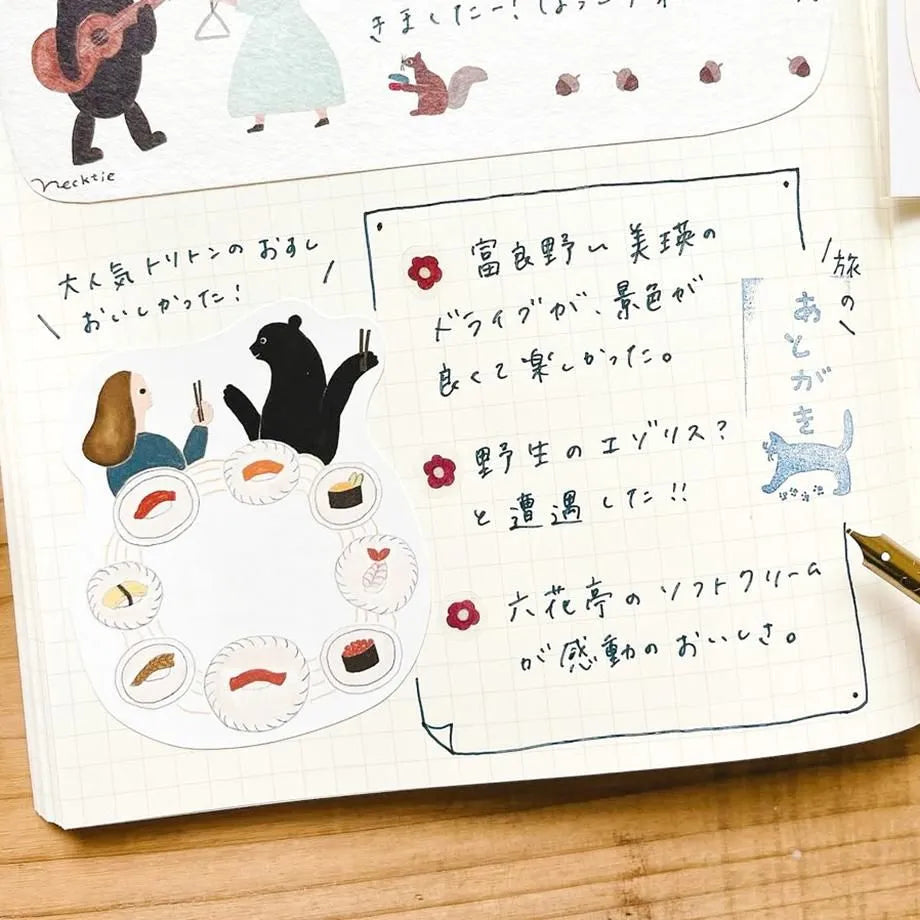 きましたー！
necktie
大人気トリトンのおすし
おいしかった！
富良野〜美瑛の
ドライブが、景色が
良くて楽しかった。
野生のエゾリス？
と遭遇した!!
六花亭のソフトクリーム
が感動のおいしさ。
旅の
あとがき